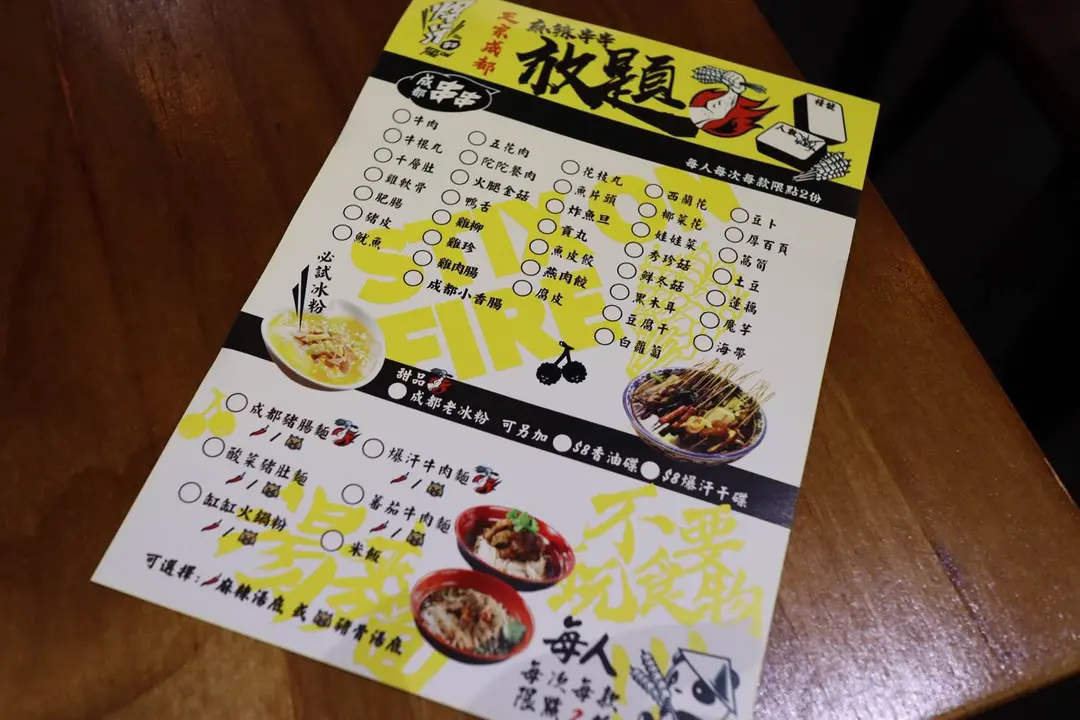 正宗成都
麻辣串串
放題
枱號
人數
每人每次每款限點2份
成都串串
牛肉
牛根丸
千層肚
雞軟骨
肥腸
豬皮
魷魚
五花肉
陀陀餐肉
火腿金菇
鴨舌
雞柳
雞珍
雞肉腸
成都小香腸
花枝丸
魚片頭
炸魚旦
貢丸
魚皮餃
燕肉餃
腐皮
西蘭花
椰菜花
娃娃菜
秀珍菇
鮮冬菇
黑木耳
豆腐干
白蘿蔔
豆卜
厚百頁
萵筍
土豆
蓮藕
魔芋
海帶
FIRE
必試冰粉
甜品
成都老冰粉 可另加 $8香油碟 $8爆汗干碟
成都豬腸麵
/
酸菜豬肚麵
/
缸缸火鍋粉
/
爆汗牛肉麵
/
蕃茄牛肉麵
/
米飯
可選擇: 麻辣湯底 或 豬骨湯底
不要
玩食物
每人
每次每款
限點2